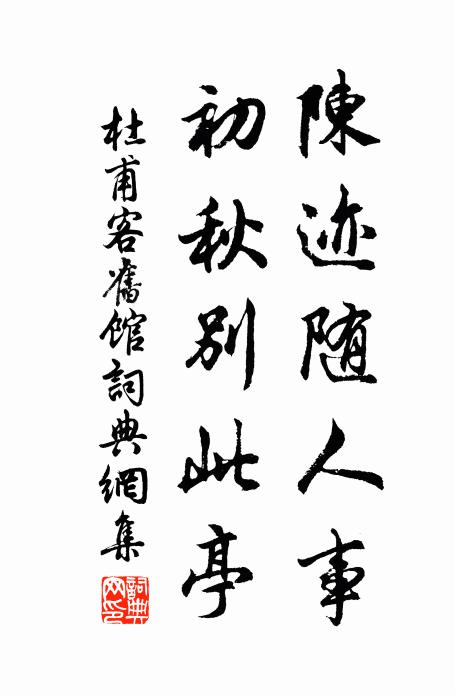 陳迹随人事
初秋別此亭
杜甫客舊館詞典網集
詞典
网印